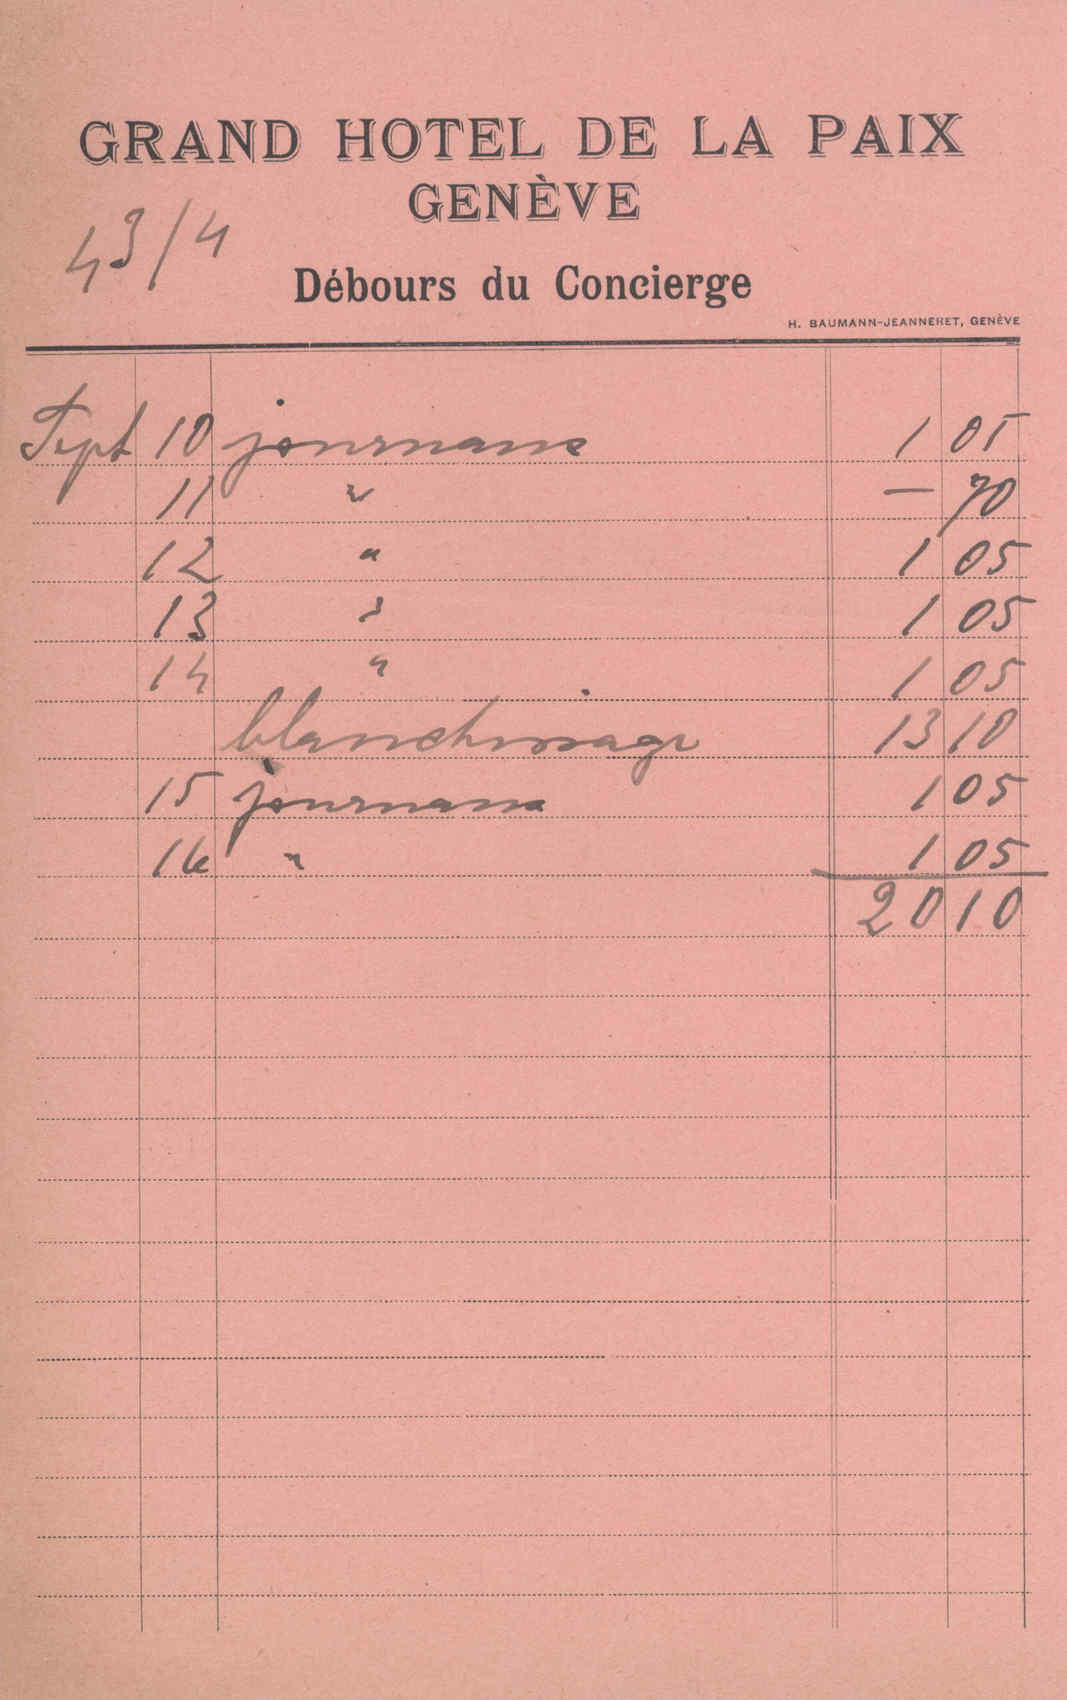 GRAND HOTEL DE LA PAIX
GENÈVE
43/4
Débours du Concierge
H. BAUMANN-JEANNERET, GENÈVE
Sept 10 journaux 1 05
11 " — 70
12 " 1 05
13 " 1 05
14 " 1 05
blanchissage 13 10
15 journaux 1 05
16 " 1 05
20 10